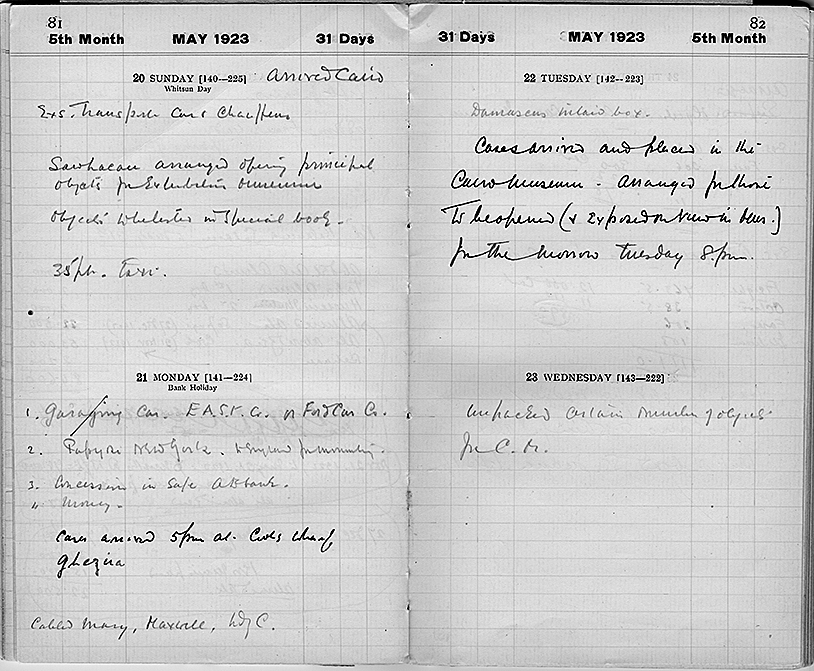 81
5th Month MAY 1923 31 Days
20 SUNDAY [140—225] Arrived Cairo
Whitsun Day
Exs. Transport Cars Chauffeur
arranged opening principal
objects for Exhibition museum
objects in special book.
35 pt. taxi.
21 MONDAY [141—224]
Bank Holiday
1. Garaging Car. E.A.S.F. Co. or Ford Car Co.
2. Papyri New York. to England for mounting.
3. Concession in Safe AB bank.
" Money.
Cases arrived 5 pm at Cooks wharf
Ghezira
Cabled Mary, Maxwell, Ldy C.
82
31 Days MAY 1923 5th Month
22 TUESDAY [142—223]
Damascus inlaid box.
Cases arrived and placed in the
Cairo Museum - Arranged for those
to be opened (& exposed on view in
for the morrow Tuesday 8. pm.
23 WEDNESDAY [143—222]
Unpacked certain number of objects
for C. M.